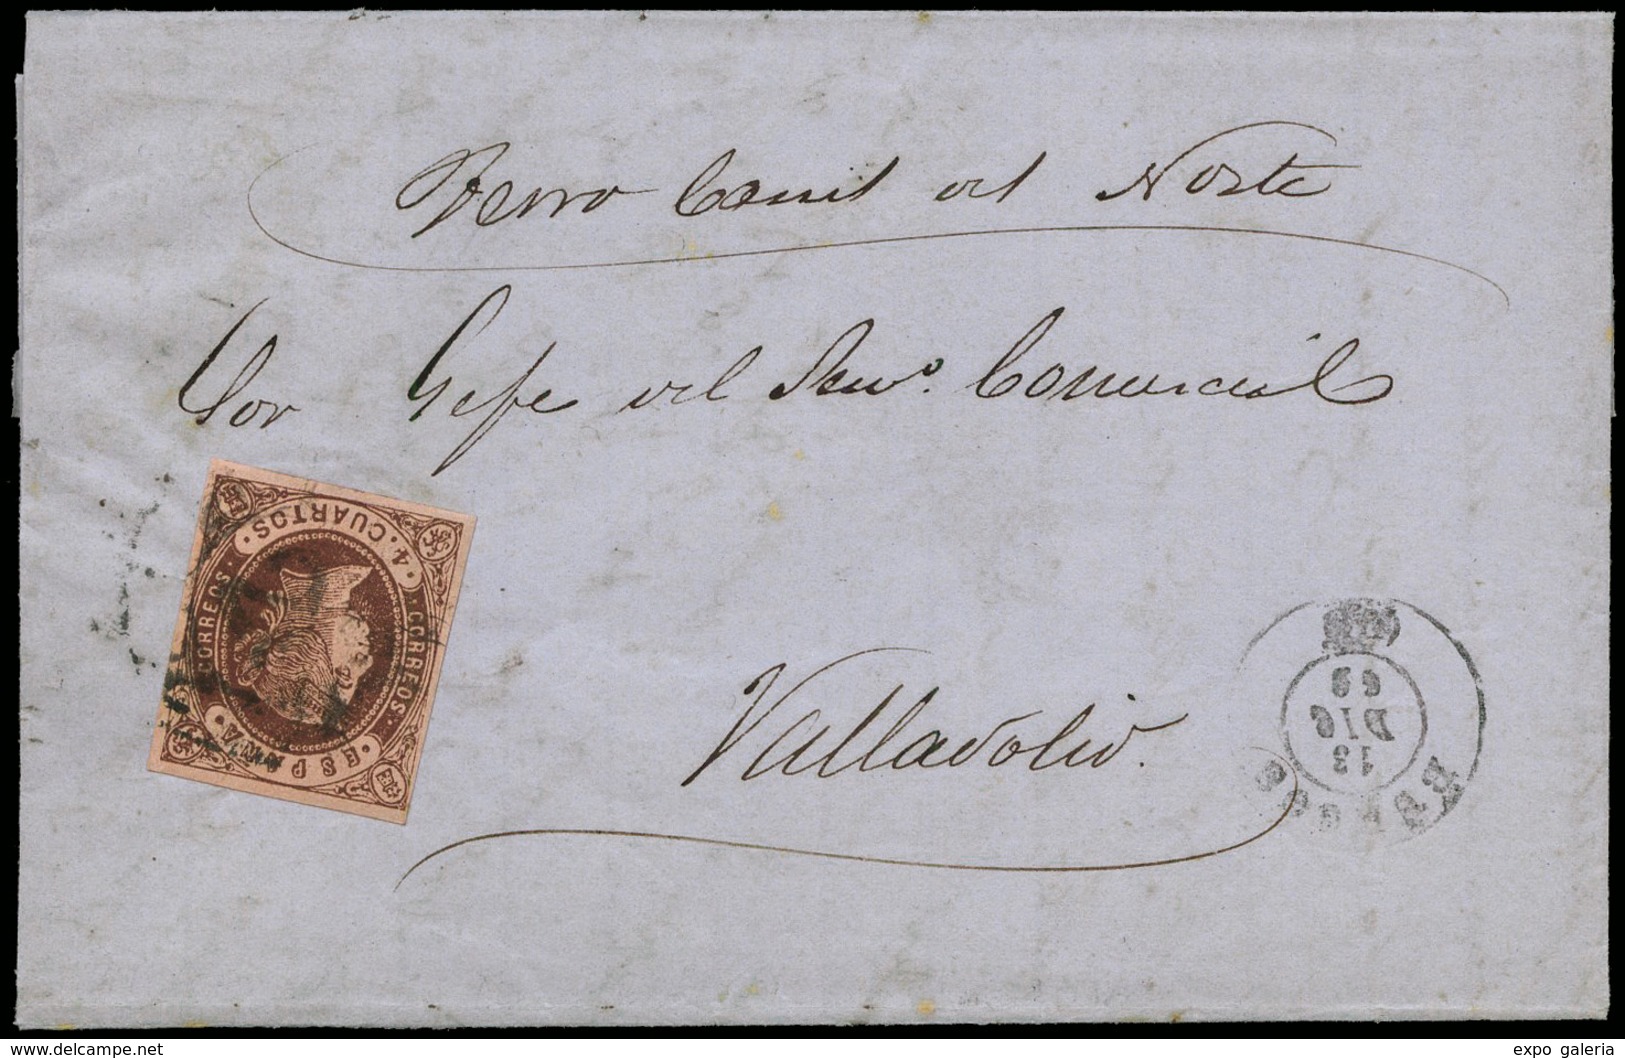 Ferro Carril del Norte
Sor Gefe del Servo. Comercial
4. CUARTOS
CORREOS.
CORREOS.
ESPAÑA
Valladolid.
BURGOS
13
DIC
63
www.delcampe.net
expo galeria